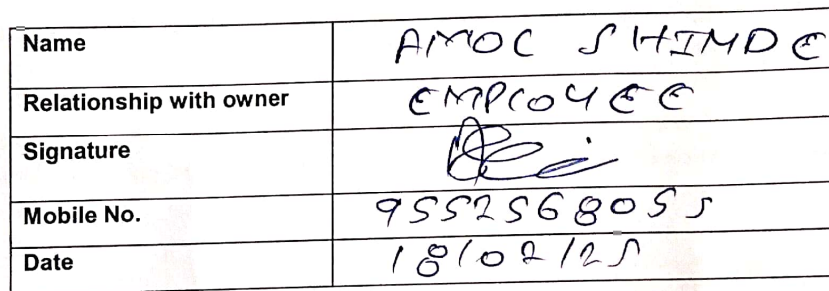 Name AMOL SHINDE
Relationship with owner EMPLOYEE
Signature
Mobile No. 9552568055
Date 18/02/25